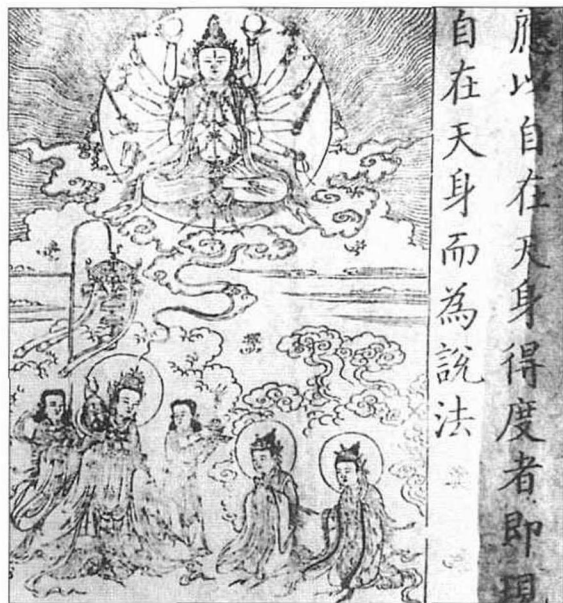 應以自在天身得度者即現
自在天身而為說法